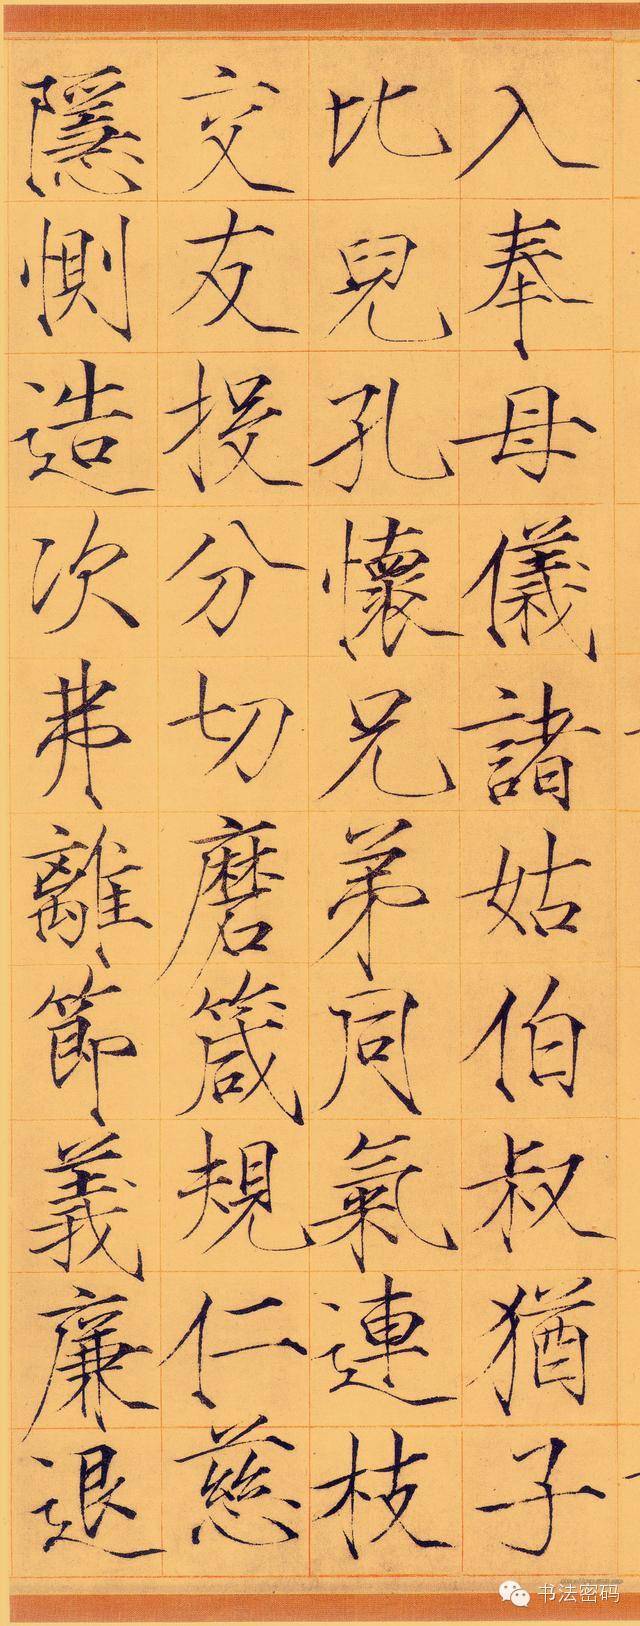 入奉母儀諸姑伯叔猶子
比兒孔懷兄弟同氣連枝
交友投分切磨箴規仁慈
隱惻造次弗離節義廉退
书法密码